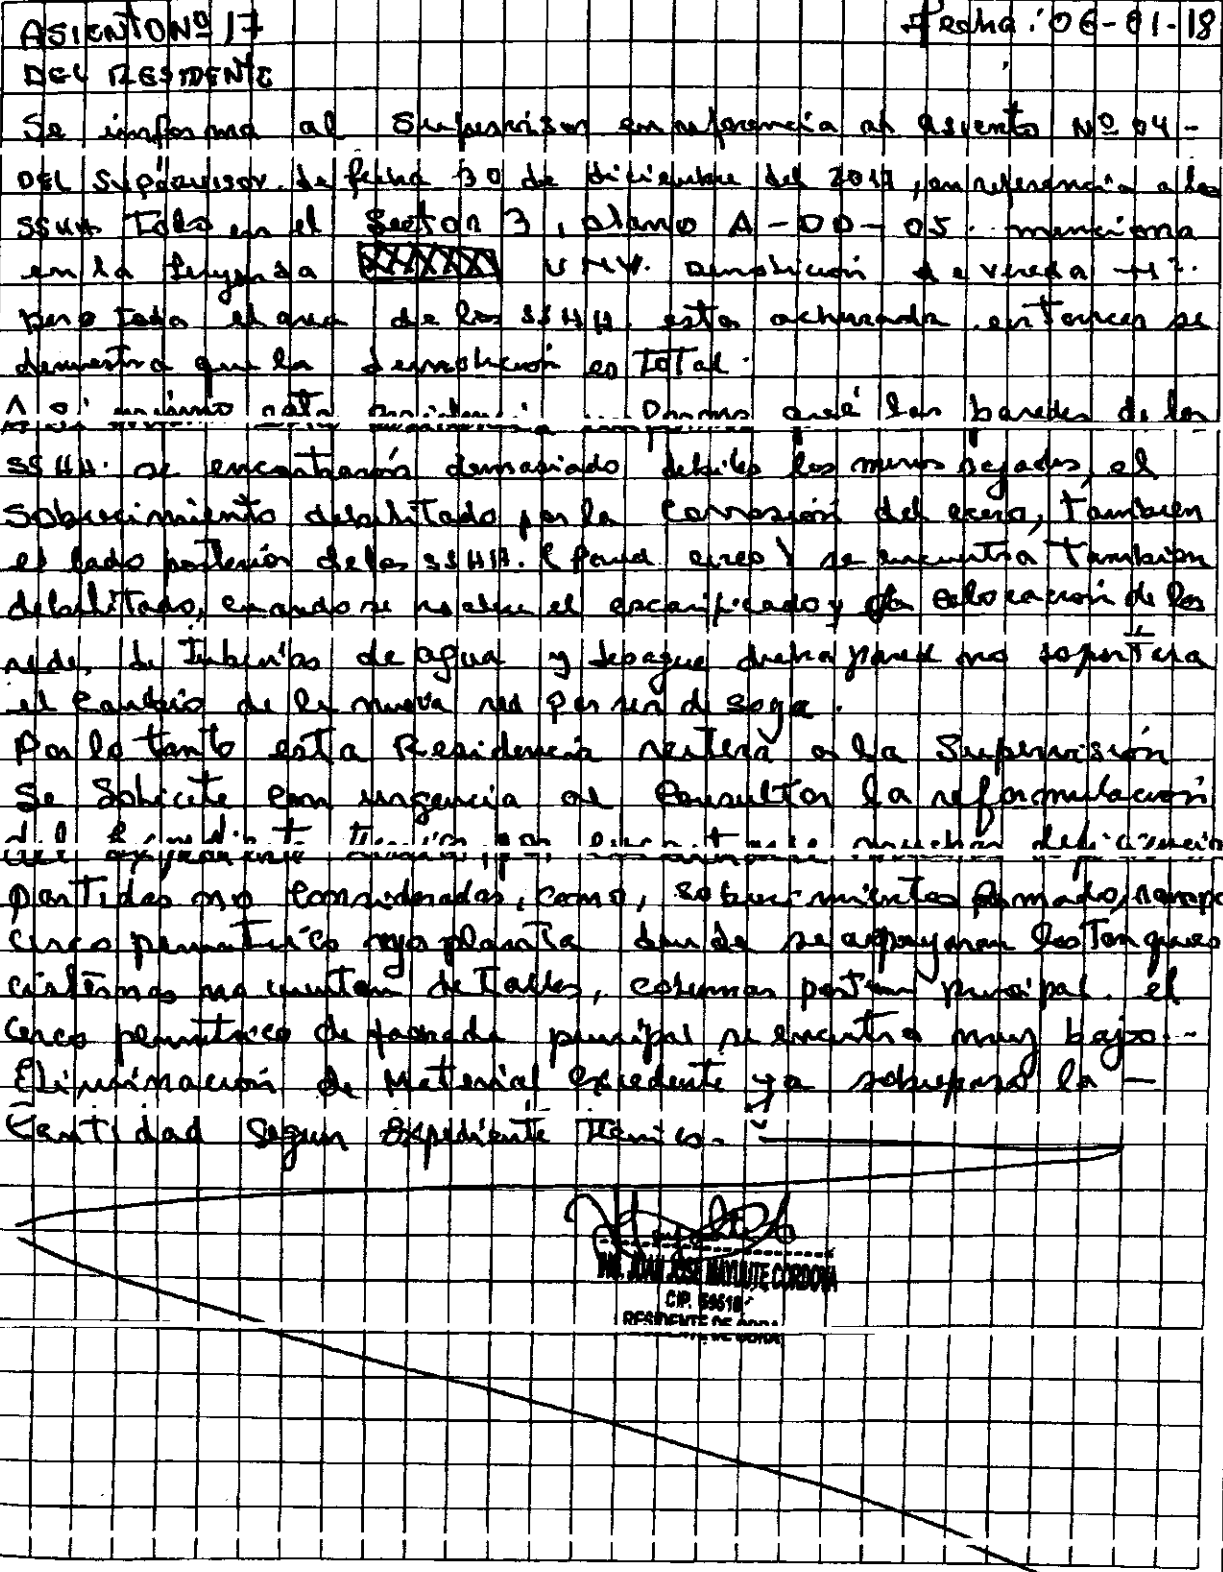 ASIENTO Nº 17 Fecha: 06-01-18
DEL RESIDENTE
Se informa al Supervisor en referencia al asiento Nº 04 -
DEL Supervisor de fecha 30 de diciembre del 2017, en referencia a los
SSHH Todo en el Sector 3, plano A-OD-05. menciona
en la leyenda demolición de vereda
pero todo el area de los SSHH. esta achurada entonces se
demuestra que la demolición es Total.
Asi mismo esta Residencia informa que las paredes de los
SSHH. se encontraron demasiado debiles los muros rajados, el
sobrecimiento debilitado por la corrosión del acero, Tambien
el lado posterior de los SSHH. (Pared cerco) se encuentra Tambien
debilitado, cuando se realice el escarificado y la colocación de las
redes de Tuberias de agua y desague dicha pared no soportara
el Cambio de la nueva red por ser de soga.
Por lo tanto esta Residencia reitera a la Supervisión
Se Solicite con urgencia al Consultor la reformulación
del Expediente Tecnico, por encontrarse muchas deficiencia
partidas no consideradas, como, sobrecimientos armado,
cerco perimetrico donde se apoyaran los Tanques
cisternas no cuentan detalles, columnas principal. el
Cerco perimetrico de fachada principal se encuentra muy bajo.-
Eliminación de Material Excedente ya sobrepaso la -
Cantidad Segun Expediente Tecnico.
ING. JUAN JOSE CORDOVA
CIP.
RESIDENTE DE OBRA